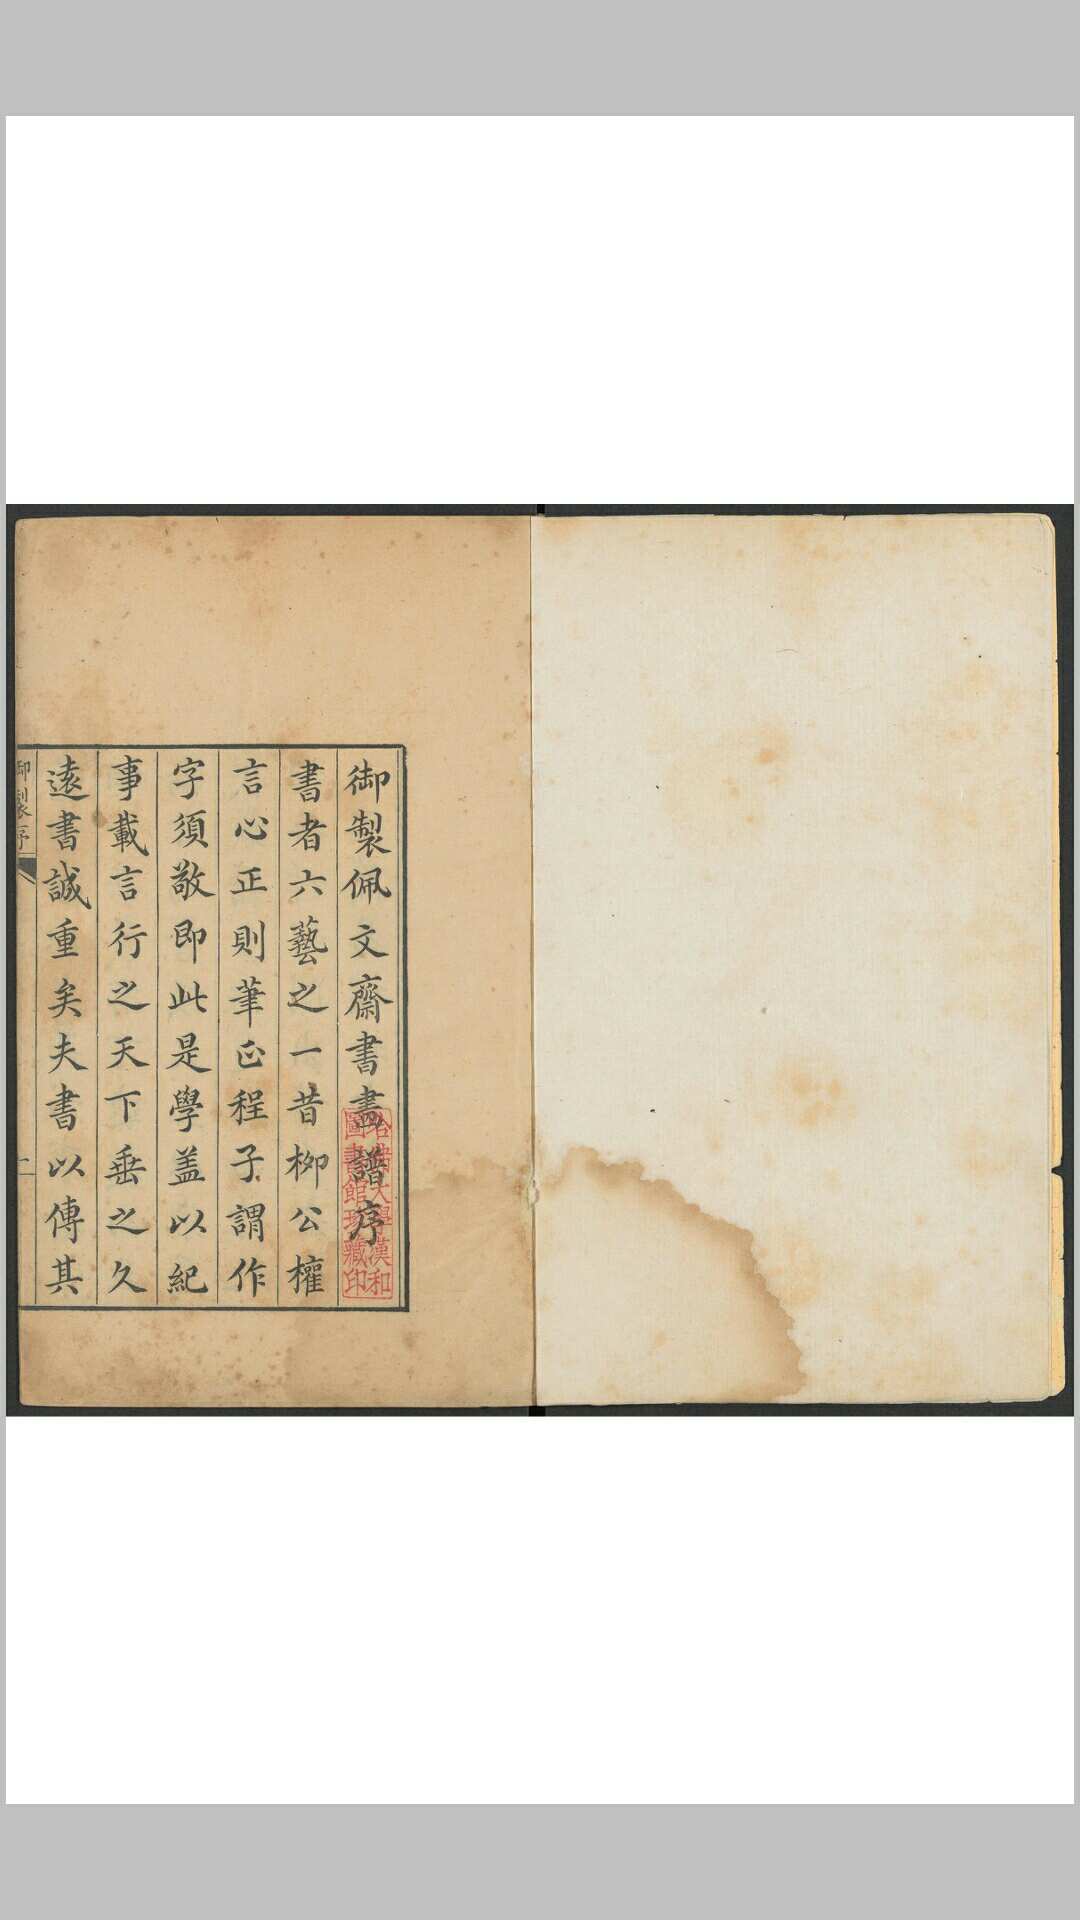 御製佩文齋書畫譜序
書者六藝之一昔柳公權
言心正則筆正程子謂作
字須敬即此是學蓋以紀
事載言行之天下垂之久
遠書誠重矣夫書以傳其
御製序
一
哈佛大學漢和
圖書館珍藏印